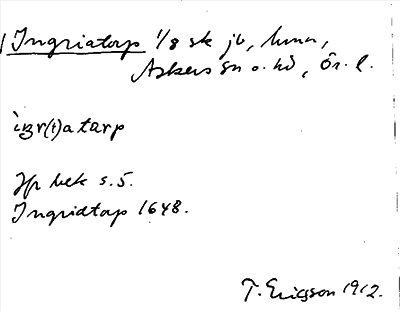 Ingriatorp 1/8 sk jb,
Askers sn o. hd, Ör. l.
ìŋr(t)a tarp
Jfr bek s. 5.
Ingridtorp 1648.
T. Ericsson 1912.